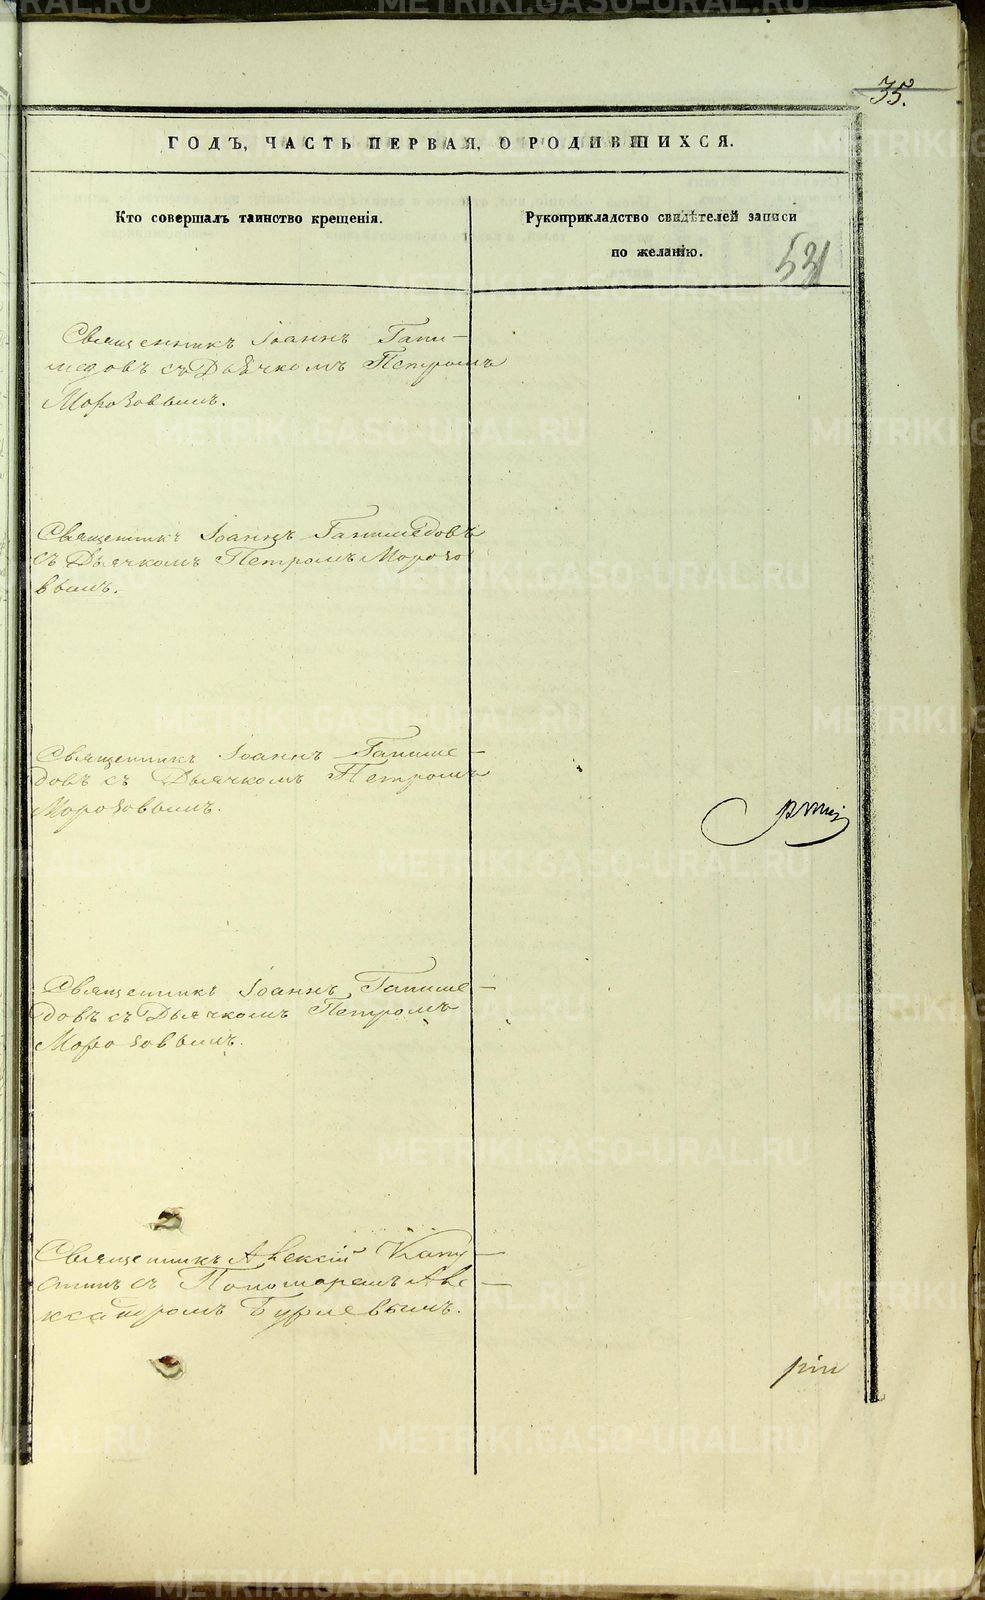 35.
ГОДЪ, ЧАСТЬ ПЕРВАЯ, О РОДИВШИХСЯ.
Кто совершалъ таинство крещенія.
Рукоприкладство свидѣтелей записи
по желанію.
531
Священникъ Іоаннъ Гани-
медовъ съ Дьячкомъ Петромъ
Морозовымъ.
Священникъ Іоаннъ Ганимедовъ
съ Дьячкомъ Петромъ Морозо
вымъ.
Священникъ Іоаннъ Ганиме-
довъ съ Дьячкомъ Петромъ
Морозовымъ.
Священникъ Іоаннъ Ганиме-
довъ съ Дьячкомъ Петромъ
Морозовымъ.
Священникъ Алексій
съ Пономаремъ Але-
ксандромъ
METRIKI.GASO-URAL.RU